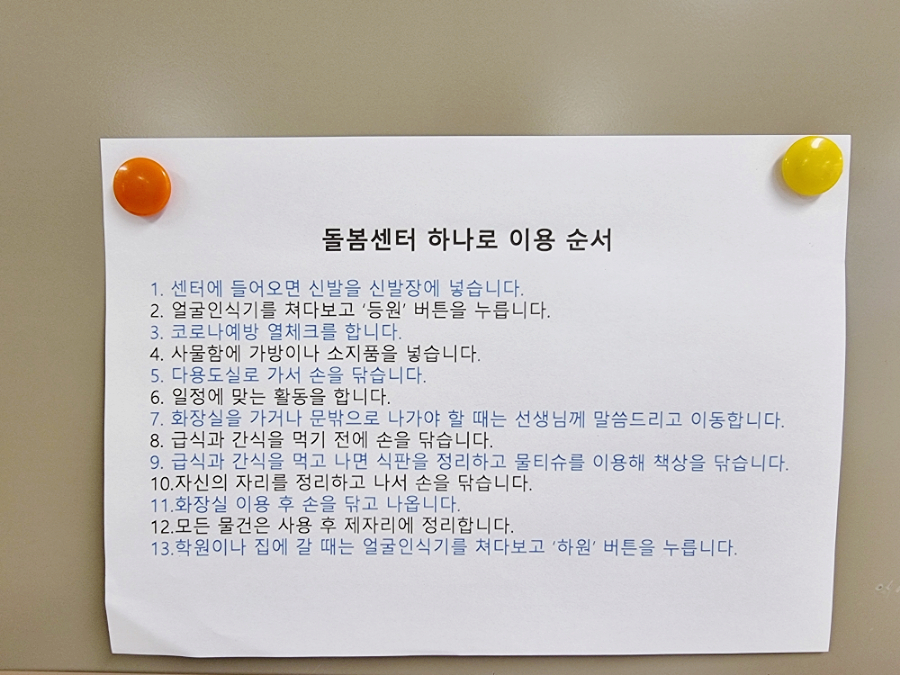 돌봄센터 하나로 이용 순서
1. 센터에 들어오면 신발을 신발장에 넣습니다.
2. 얼굴인식기를 쳐다보고 ‘등원’ 버튼을 누릅니다.
3. 코로나예방 열체크를 합니다.
4. 사물함에 가방이나 소지품을 넣습니다.
5. 다용도실로 가서 손을 닦습니다.
6. 일정에 맞는 활동을 합니다.
7. 화장실을 가거나 문밖으로 나가야 할 때는 선생님께 말씀드리고 이동합니다.
8. 급식과 간식을 먹기 전에 손을 닦습니다.
9. 급식과 간식을 먹고 나면 식판을 정리하고 물티슈를 이용해 책상을 닦습니다.
10.자신의 자리를 정리하고 나서 손을 닦습니다.
11.화장실 이용 후 손을 닦고 나옵니다.
12.모든 물건은 사용 후 제자리에 정리합니다.
13.학원이나 집에 갈 때는 얼굴인식기를 쳐다보고 ‘하원’ 버튼을 누릅니다.